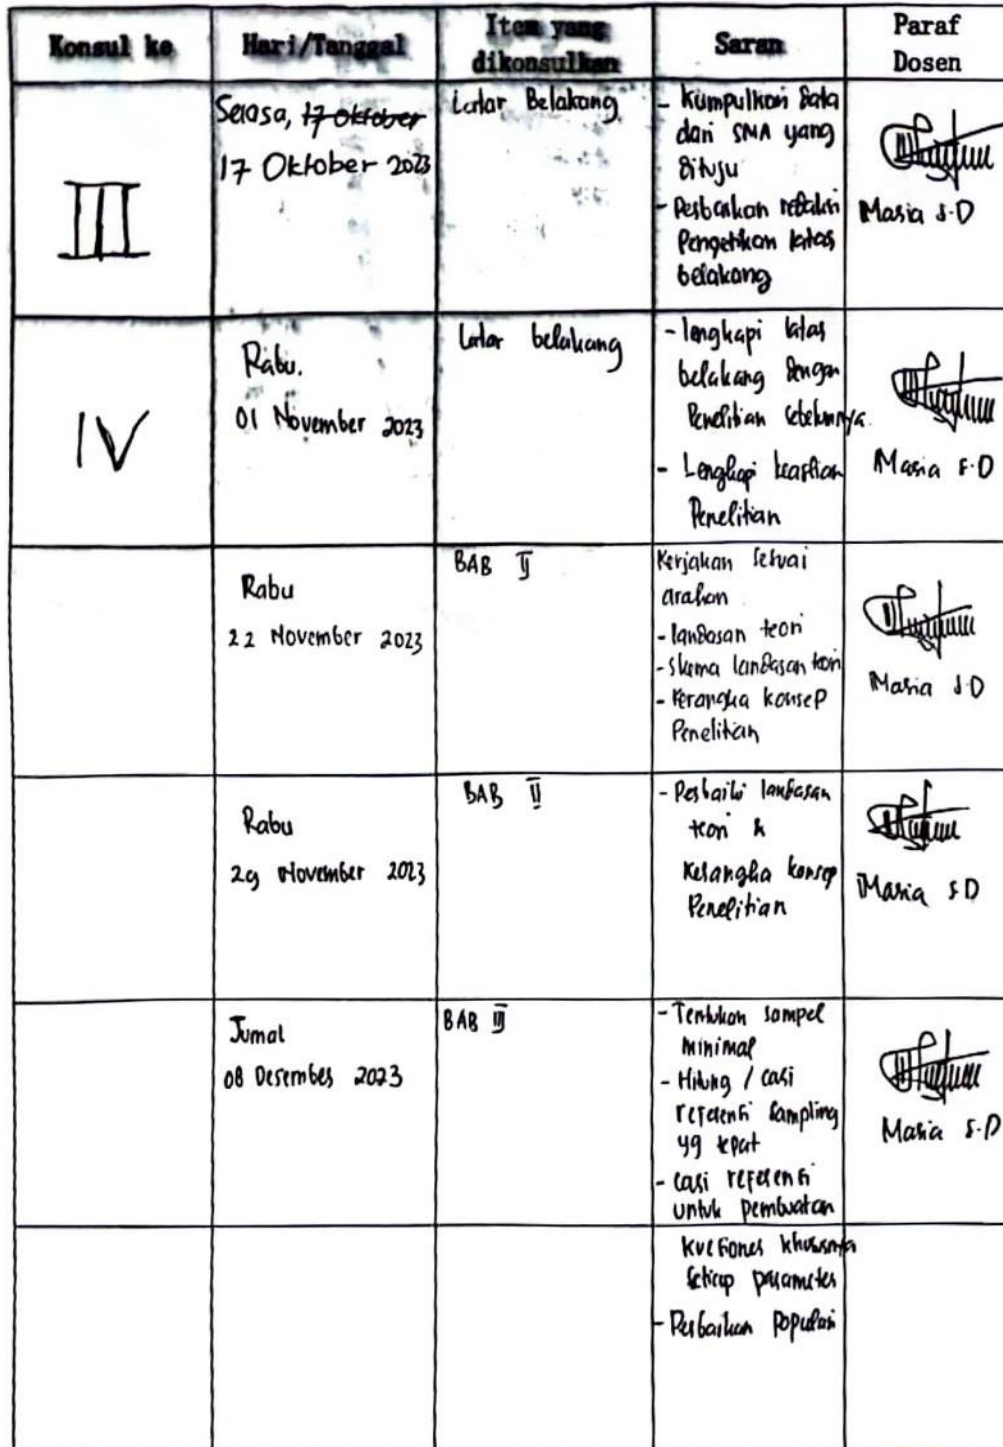 Konsul ke
Hari/Tanggal
Item yang
dikonsulkan
Saran
Paraf
Dosen
III
Selasa, 17 Oktober
17 Oktober 2023
Latar Belakang
- Kumpulkan data
dari SMA yang
dituju
- Perbaikan redaksi
Pengetikan latar
belakang
Maria S.D
IV
Rabu.
01 November 2023
Latar belakang
- lengkapi latar
belakang dengan
Penelitian sebelumnya.
- Lengkapi keaslian
Penelitian
Maria S.D
Rabu
22 November 2023
BAB II
Kerjakan sesuai
arahan
- landasan teori
- skema landasan teori
- kerangka konsep
Penelitian
Maria S.D
Rabu
29 November 2023
BAB II
- Perbaiki landasan
teori &
kerangka konsep
Penelitian
Maria S.D
Jumat
08 Desember 2023
BAB III
- Tentukan sampel
minimal
- Hitung / cari
referensi sampling
yg tepat
- cari referensi
untuk pembuatan
Maria S.D
kuesioner khususnya
setiap parameter
- Perbaikan Populasi